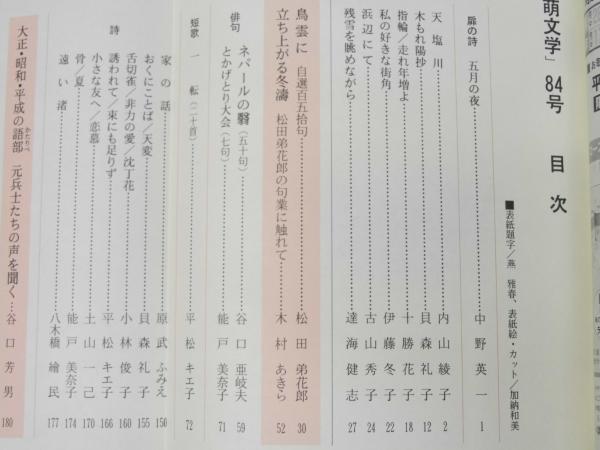 萌文学」 84号 目 次
■表紙題字/燕 雅春、表紙絵・カット/加納和美
扉の詩 五月の夜……中 野 英 一 1
天 塩 川……内 山 綾 子 2
木もれ陽抄……貝 森 礼 子 12
指輪/走れ年増よ……十 勝 花 子 18
私の好きな街角……伊 藤 冬 子 22
浜 辺 に て……古 山 秀 子 24
残雪を眺めながら……達 海 健 志 27
鳥雲に 自選百五拾句……松 田 弟花郎 30
立ち上がる冬濤 松田弟花郎の句業に触れて……木 村 あきら 52
俳句 ネパールの翳(五十句)……谷 口 亜岐夫 59
とかげとり大会(七句)……能 戸 美奈子 71
短歌 一 転(二十首)……平 松 キエ子 72
詩
家 の 話……原 武 ふみえ 150
おくにことば/天変……貝 森 礼 子 155
舌切雀/非力の愛/沈丁花……小 林 俊 子 160
誘われて/束にも足りず……平 松 キエ子 166
小さな友へ/恋慕……土 山 一 己 170
骨/夏……能 戸 美奈子 174
遠 い 渚……八木橋 繪 民 177
大正・昭和・平成の語部 かたりべ 元兵士たちの声を聞く…谷 口 芳 男 180